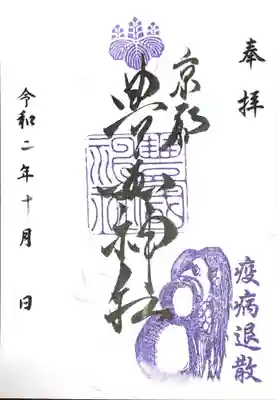 奉拝
疫病退散
京都
豊国神社
令和二年十月 日